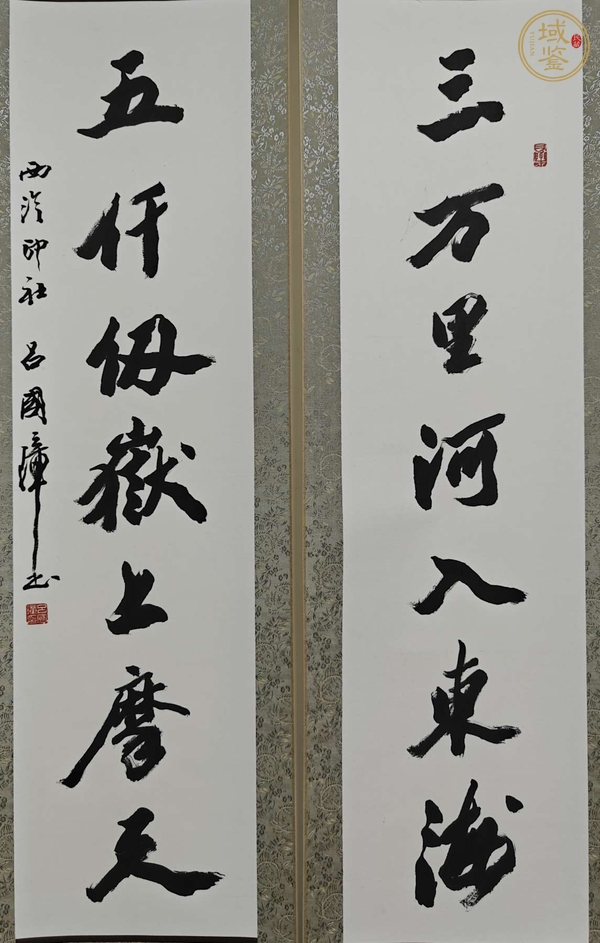 三万里河入東海
五仟仭嶽上摩天
西泠印社 呂國璋书
域鉴
YUJIAN